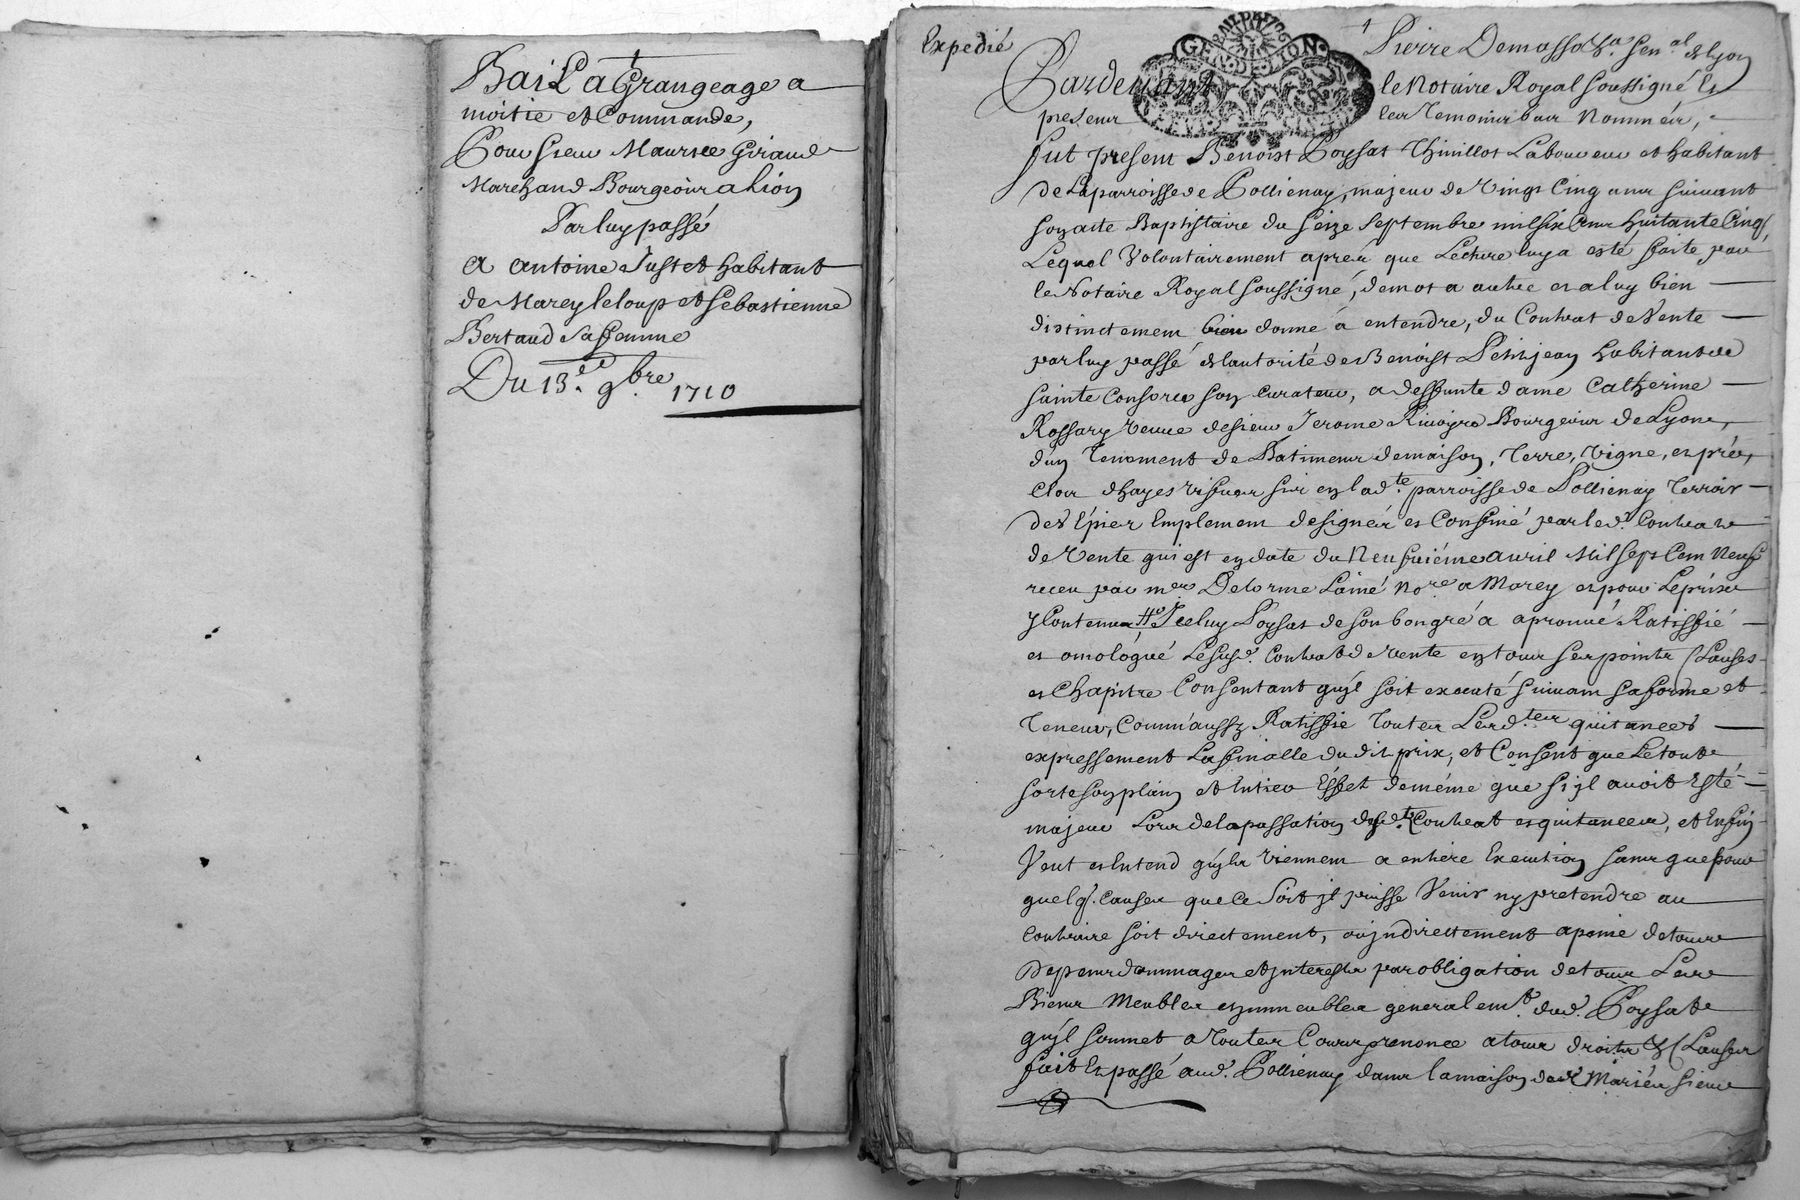 Bail a Grangeage a
moitie et Commande,
Pour Sieur Maurice Giraud
Marchand Bourgeois a Lion
Par luy passé
a antoine Just et habitant
de Marcy le loup et Sebastienne
Bertaud Sa femme
Du 13.e 9bre. 1710
Expedié
GENERALITE DE LYON
Pardevant
le Notaire Royal soussigné Et
presens
les Temoins bas Nommés,
fut present Benoist Poysat Thivillot Laboureur et habitant
de la parroisse de Pollienay, majeur de Vingt Cinq ans suivant
son acte Baptistaire du seize septembre mil six Cens huitante Cinq,
Lequel Volontairement après que Lecture luy a esté faite par
le Notaire Royal soussigné, de mot a autre et a luy bien
distinctement donné à entendre, du Contrat de Vente
par luy passé de l'autorité de Benoist Petitjean habitant de
Sainte Consorce son Curateur, a deffunte dame Catherine
Rossary veuve de sieur Jerome Rivoyre Bourgeois de Lyon,
d'un Tenement de Batimens de maison, Terre, Vigne, et pré,
Clos d'hayes vifves sis en lad.te parroisse de Pollienay Terroir
des Epies Emplement designés et Confiné par led. Contrat
de Vente qui est en date du Neufviéme avril Mil sept Cens Neuf
receu par me Delorme L'ainé No.re a Marcy et pour Le prix
y Contenu Iceluy Poysat de son bon gré a aprouvé Ratiffié
et omologué Le susd. Contrat de Vente en tous ses points Clauses
et Chapitre Consentant qu'yl soit executé suivant sa forme et
Teneur, Comm'aussy Ratiffie Toutes Lesd.tes quitances
expressement La finalle dudit prix, et Consent que Le tout
sorte son plain et Entier Effet de méme que s'il avoit Esté
majeur Lors de la passation desd.ts Contrat et quitances, et Enfin
Veut et Entend qu'yls Viennent a entiere Execution sans que pour
quelq. Cause que Ce soit jl puisse Venir ny pretendre au
Contraire soit directement, ou jndirectement a peine de tous
Depens dommages et jnterests par obligation de tous Ses
Biens Meubles et jmmeubles generalem.t dud. Poysat
qu'yl soumet a Toutes Cours renonce a tous droits & Clauses
fait Et passé aud. Pollienay dans la maison dud. Mariés sieur